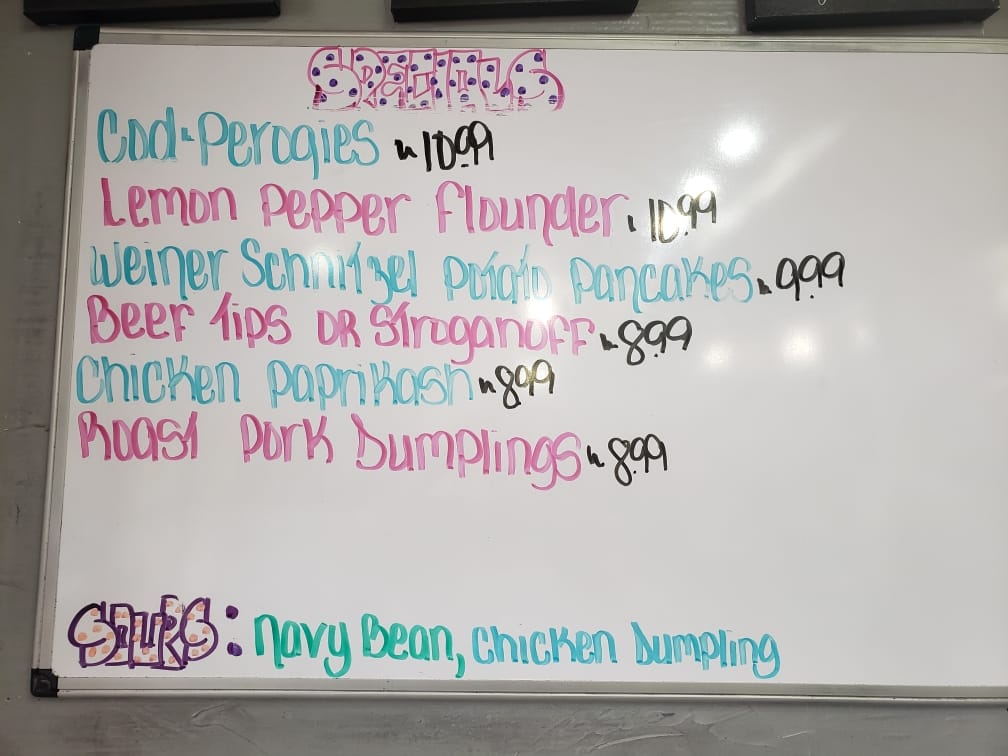 SPECIALS
Cod-Perogies - 10.99
Lemon Pepper Flounder - 10.99
Weiner Schnitzel Potato Pancakes - 9.99
Beef Tips OR Stroganoff - 8.99
Chicken Paprikash - 8.99
Roast Pork Dumplings - 8.99
SOUPS: Navy Bean, Chicken Dumpling